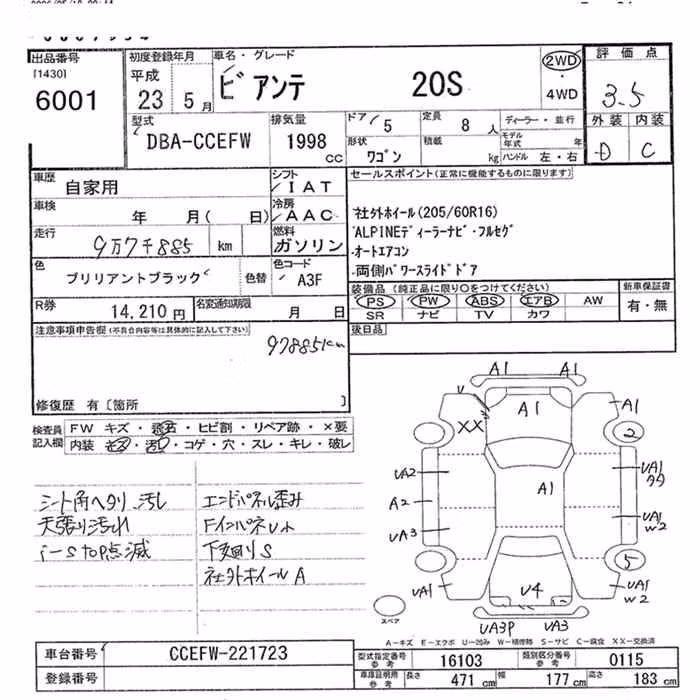 出品番号 初度登録年月 車名・グレード 評価点
[1430] 平成 ビアンテ 20S 2WD
6001 23 5月 ・ 4WD 3.5
型式 排気量 ドア 5 定員 8人 ディーラー・並行 外装 内装
DBA-CCEFW 1998 cc 形状 ワゴン 積載 kg モデル年式 年 D C
ハンドル 左・右
車歴 自家用 シフト IAT セールスポイント(正常に機能するものに限ります)
車検 年 月( 日) 冷房 AAC 社外ホイール(205/60R16)
走行 9万7千885 km 燃料 ガソリン ALPINEディーラーナビ・フルセグ
オートエアコン
色 ブリリアントブラック 色替 色コード A3F 両側パワースライドドア
装備品(純正品に限り○をつけてください) 新車保証書
R券 14,210円 名変通知期限 月 日 PS PW ABS エアB AW 有・無
SR ナビ TV カワ
注意事項申告欄(不具合内容等は具体的に記入して下さい) 後日品
97885km
修復歴 有〔箇所 〕
検査員記入欄 FW キズ・飛石・ヒビ割・リペア跡・×要
内装 キズ・汚れ・コゲ・穴・スレ・キレ・破レ
シート角ヘタリ、汚レ エンドパネル歪み
天張り汚れ FインパネUト
i-stop点滅 下廻りS
社外ホイールA
A1 A1
A1 A1
XX 2
UA2 A1 UA1
A2 UA1
W2
UA3 5
UA1 U4 UA1
W2
スペア UA3P UA3
A-キズ E-エクボ U-凹み W-補修跡 S-サビ C-腐食 XX-交換済
車台番号 CCEFW-221723 型式指定番号 参考 16103 類別区分番号 参考 0115
登録番号 車庫証明用 参考 長さ 471 cm 幅 177 cm 高さ 183 cm